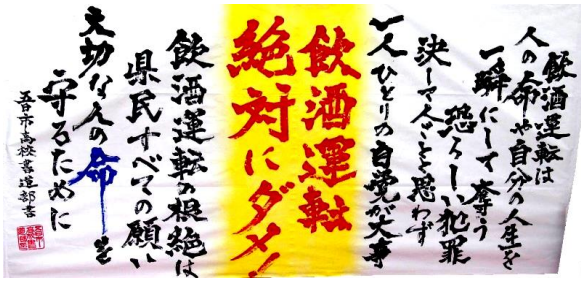 飲酒運転は
人の命や自分の人生を
一瞬にして奪う
恐ろしい犯罪
決して人ごとと思わず
一人ひとりの自覚が大事
飲酒運転
絶対にダメ！
飲酒運転の根絶は
県民すべての願い
大切な人の命を
守るために
五日市高校書道部書